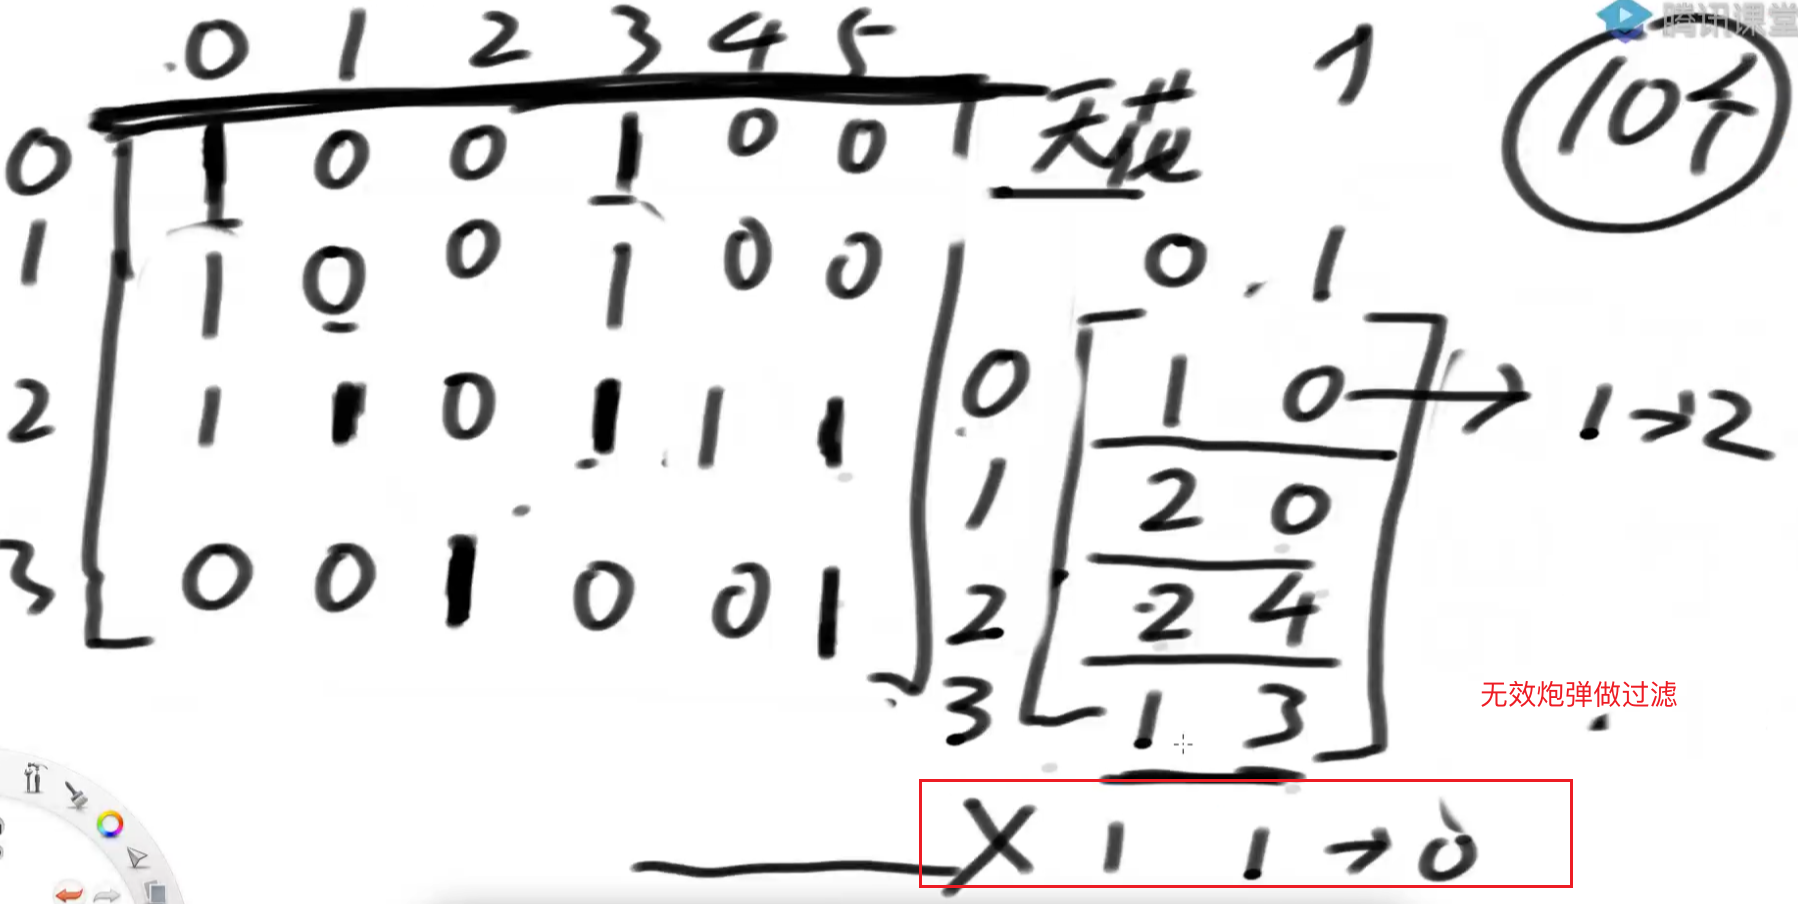 腾讯课堂
0 1 2 3 4 5
1
10个
天花
0 1 0 0 1 0 0
1 1 0 0 1 0 0
2 1 1 0 1 1 1
3 0 0 1 0 0 1
0 . 1
0 1 0 → 1 → 2
1 2 0
2 2 4
3 1 3
无效炮弹做过滤
X 1 1 → 0